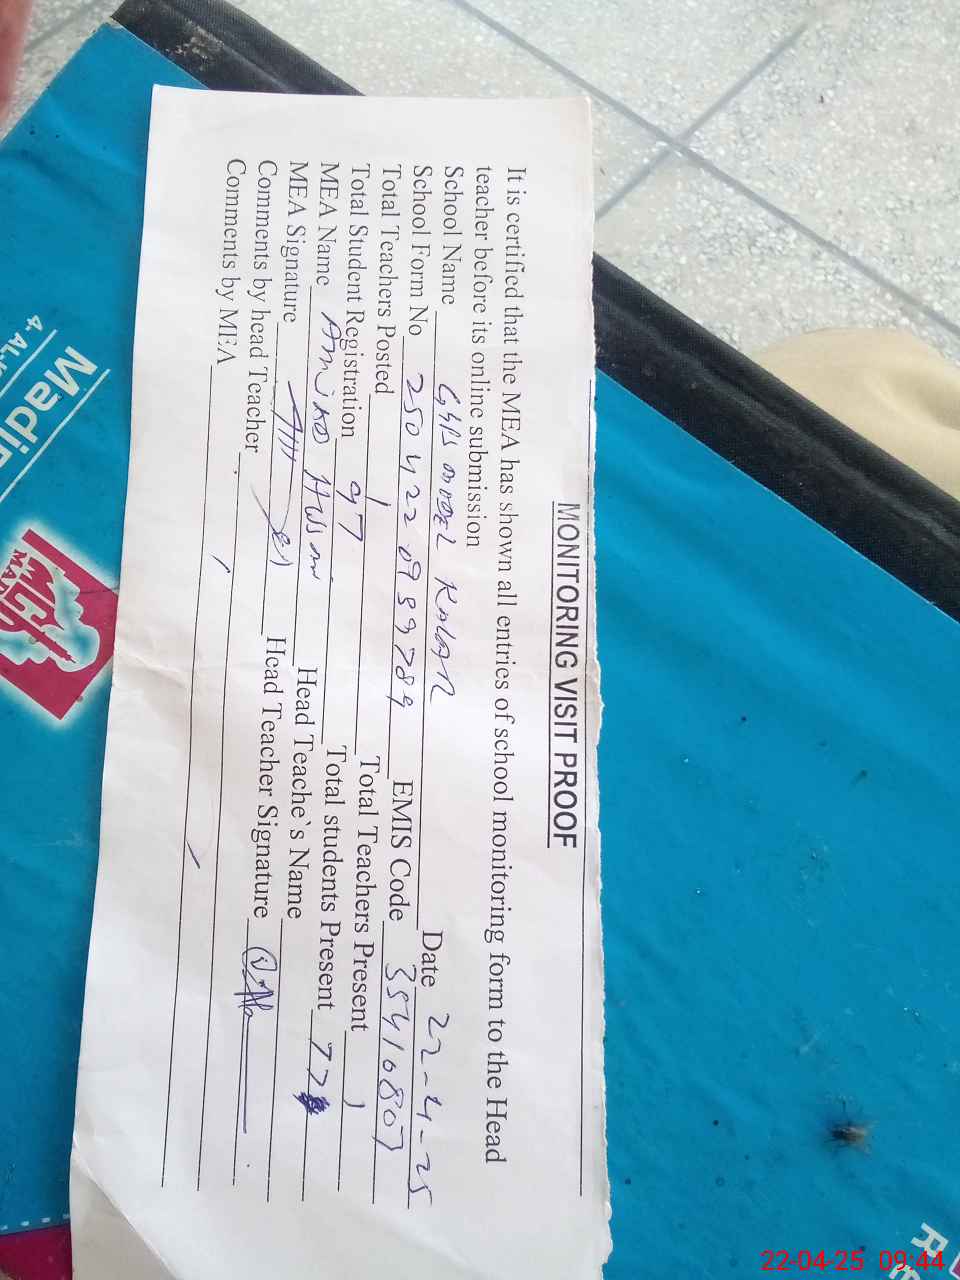 MONITORING VISIT PROOF
It is certified that the MEA has shown all entries of school monitoring form to the Head
teacher before its online submission
School Name GGPS model Kalan Date 22-4-25
School Form No 2504220989789 EMIS Code 35410807
Total Teachers Posted 1 Total Teachers Present 1
Total Student Registration 97 Total students Present 77
MEA Name Amjad Head Teache`s Name
MEA Signature Head Teacher Signature
Comments by head Teacher
Comments by MEA
Madi
22-04-25 09:44